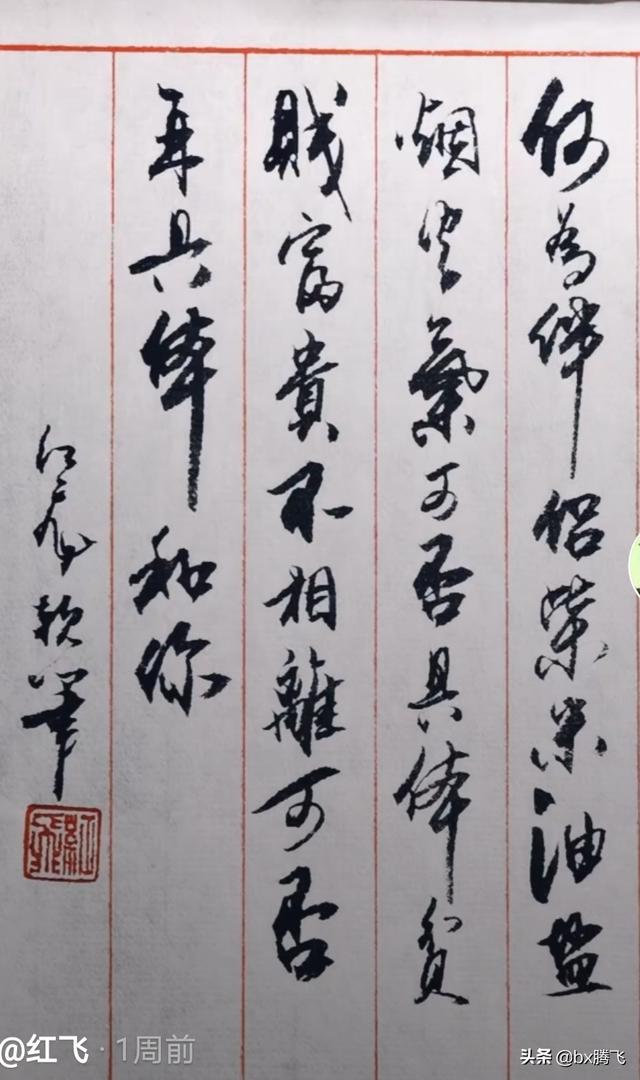 何為伴侶柴米油盐
烟火氣可否具体貧
賤富貴不相離可否
再具体和你
红飛軟筆
红飛
@红飞 · 1周前
头条 @bx腾飞